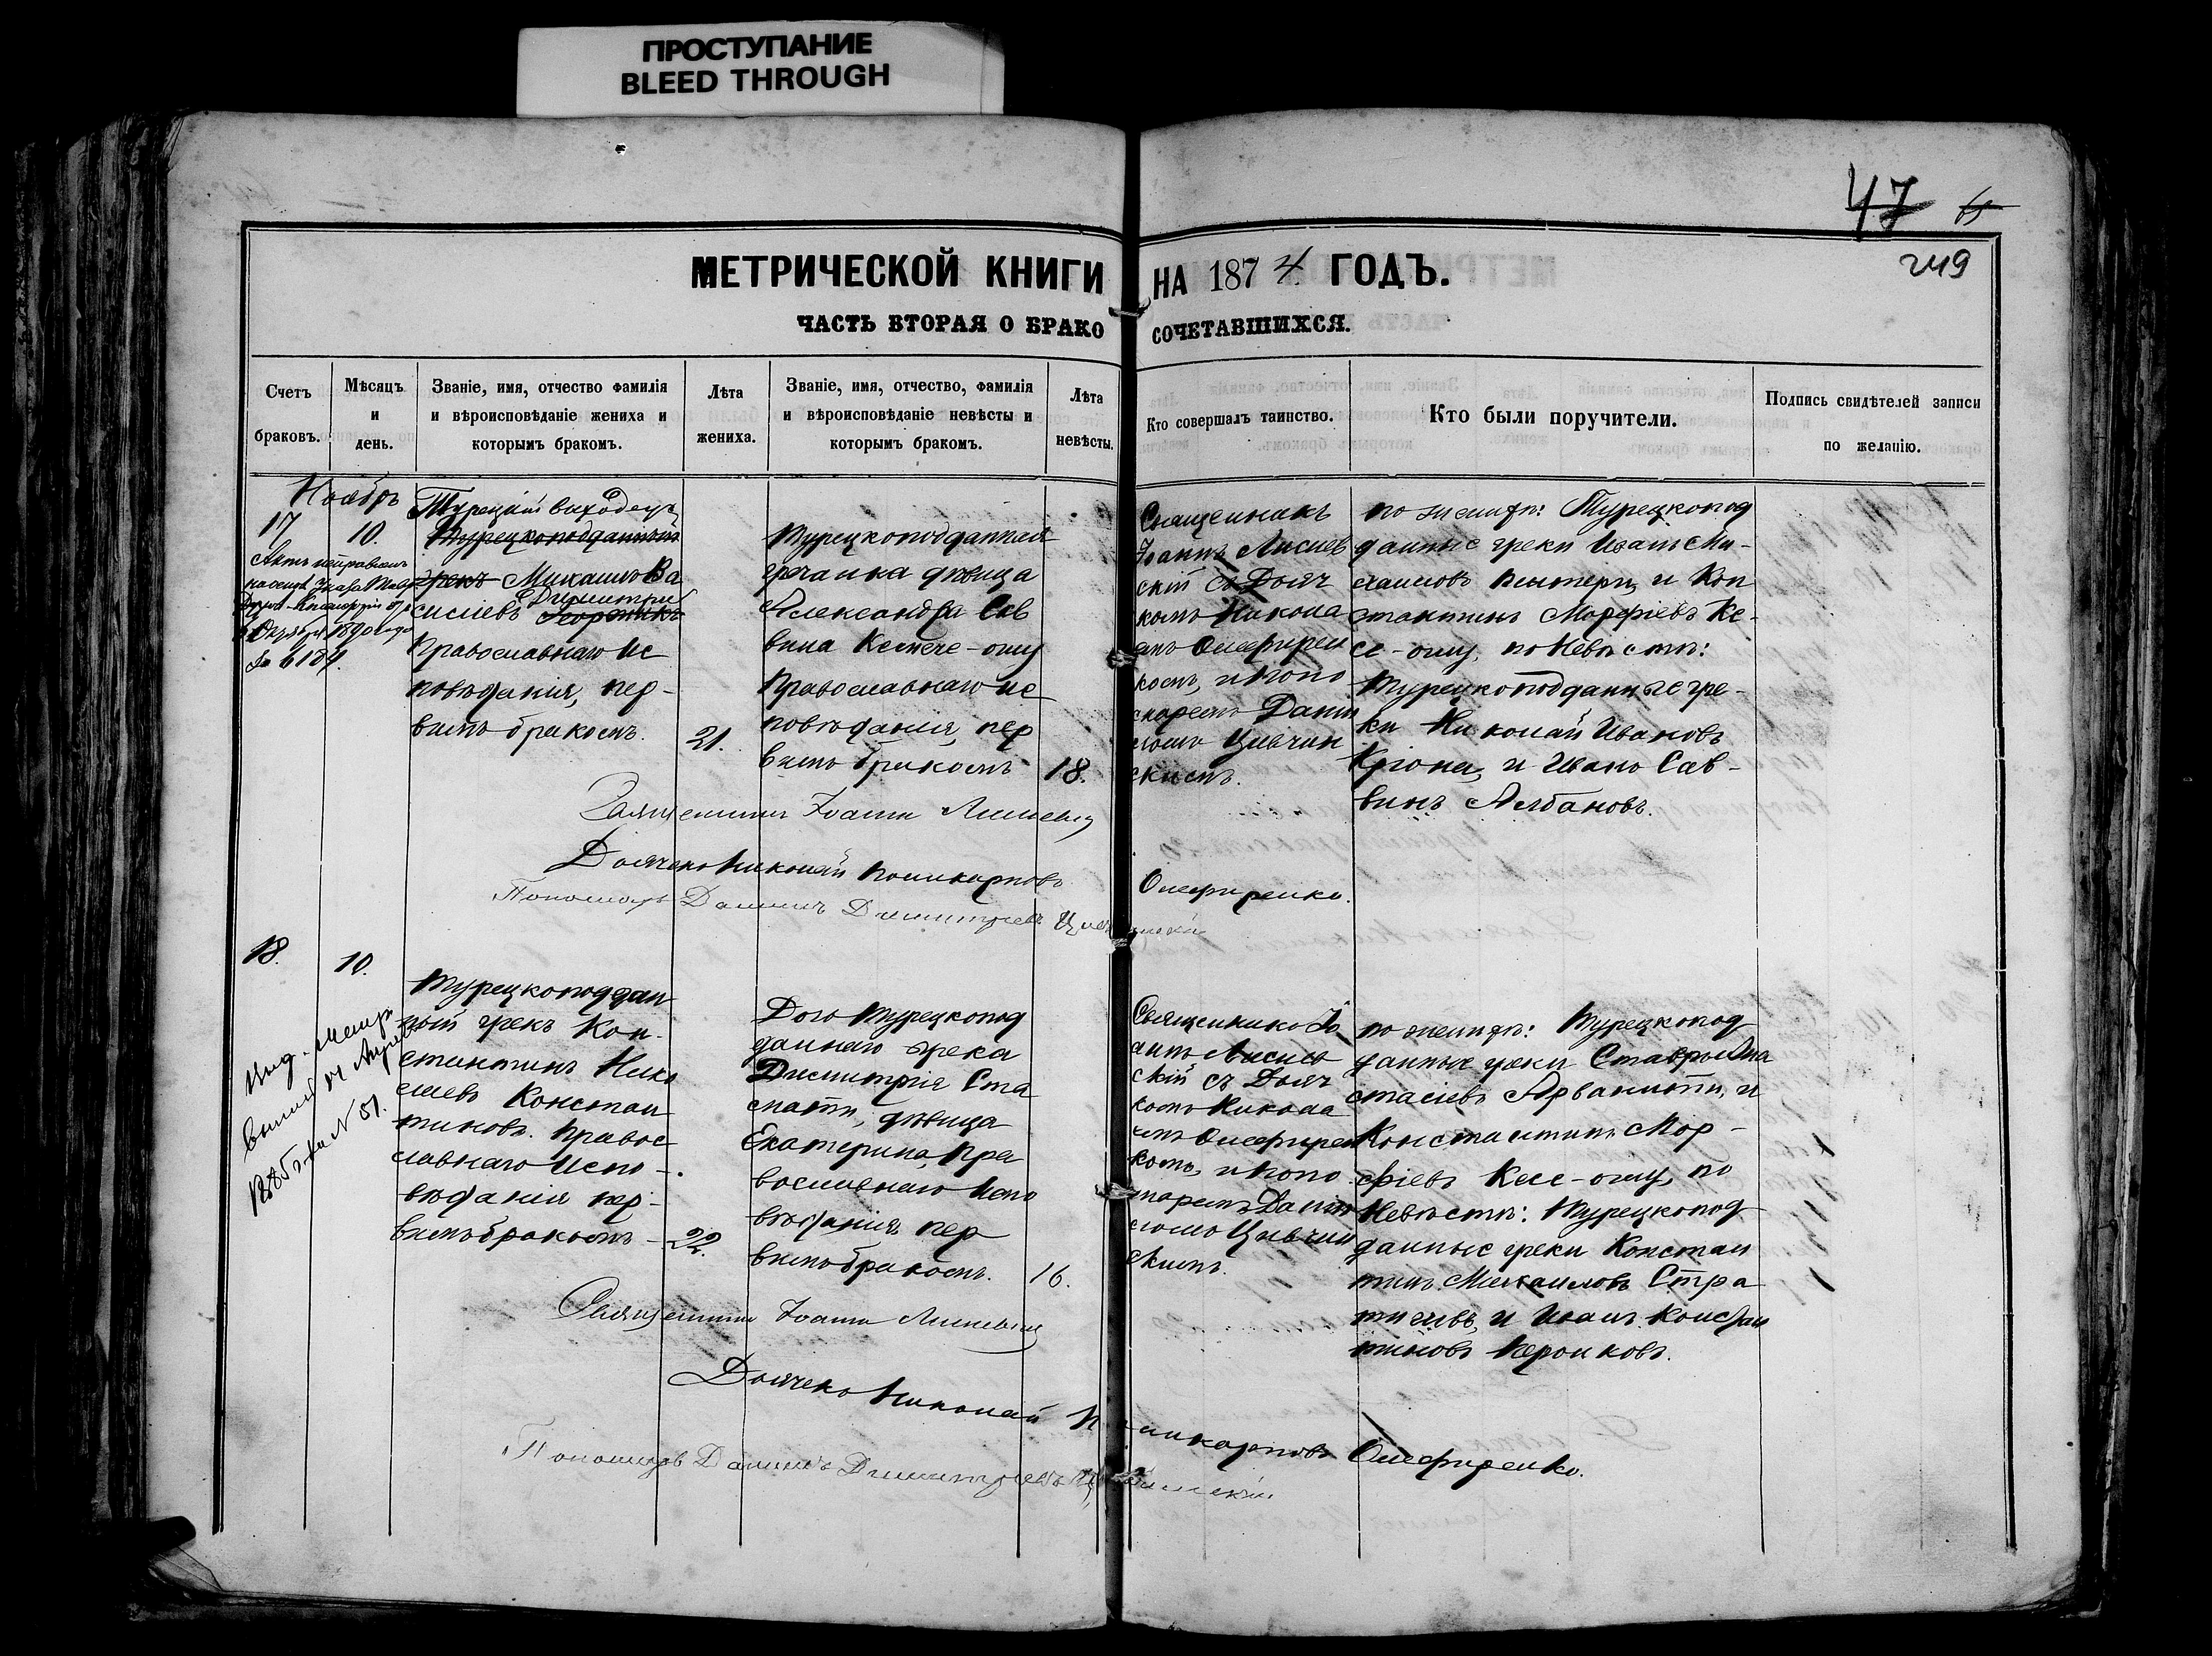 ПРОСТУПАНИЕ
BLEED THROUGH
47
249
МЕТРИЧЕСКОЙ КНИГИ НА 1874 ГОДЪ.
ЧАСТЬ ВТОРАЯ О БРАКОСОЧЕТАВШИХСЯ.
Счетъ
браковъ.
Мѣсяцъ
и
день.
Званіе, имя, отчество фамилія
и вѣроисповѣданіе жениха и
которымъ бракомъ.
Лѣта
жениха.
Званіе, имя, отчество, фамилія
и вѣроисповѣданіе невѣсты и
которымъ бракомъ.
Лѣта
невѣсты.
Кто совершалъ таинство.
Кто были поручители.
Подпись свидѣтелей записи
по желанію.
Ноябрь
17
10.
Актъ исправленъ
Указа
Октября 1890 года
№ 6184.
Турецкій выходецъ
Турецкоподданный
грекъ Михаилъ Ва
Димитри
силіевъ
Православнаго Ис
повѣданія, пер-
вымъ бракомъ.
21.
Турецкоподданная
гречанка дѣвица
Александра Сав
вина Кемече-оглу
Православнаго ис
повѣданія, пер
вымъ бракомъ
18.
Священникъ
Іоаннъ Лиснев
скій съ Дьяч
комъ Никола
емъ Олефирен
комъ, и Поно
маремъ Дани
иломъ Цивчин
скимъ.
по женихѣ: Турецкопод
данные греки Иванъ Ми-
хаиловъ и Кон
стантинъ Морфіевъ Ке-
се-оглу, по Невѣстѣ:
Турецкоподданные гре-
ки Николай Ивановъ
Кріона, и Иванъ Сав-
винъ Албановъ.
Священникъ Іоаннъ Лисневскій
Дьячекъ Николай Поликарповъ Олефиренко.
Пономарь Даніилъ Димитріевъ Цивчинскій
18.
10.
Выд. метр.
выпись 14 Апрѣля
1885 г. за № 51.
Турецкоподдан
ный грекъ Кон-
стантинъ Нико
лаевъ Констан
тиновъ. Правос
лавнаго Испо-
вѣданія пер-
вымъ бракомъ -
22.
Дочь Турецкопод
даннаго грека
Димитрія Ста
мати, дѣвица
Екатерина, Пра
вославнаго Испо
вѣданія, пер
вымъ бракомъ.
16.
Священникъ Іо
аннъ Лиснев
скій съ Дьяч
комъ Никола
емъ Олефирен
комъ, и Поно
маремъ Дани
иломъ Цивчин
скимъ.
по женихѣ: Турецкопод
данные греки Ставръ Ана
стасіевъ Арванити, и
Константинъ Мор-
фіевъ Кесе-оглу, по
Невѣстѣ: Турецкопод
данные греки Констан
тинъ Михаиловъ Стра
тіевъ, и Иванъ Констан
тиновъ
Священникъ Іоаннъ Лисневскій
Дьячекъ Николай Поликарповъ Олефиренко.
Пономарь Даніилъ Димитріевъ Цивчинскій